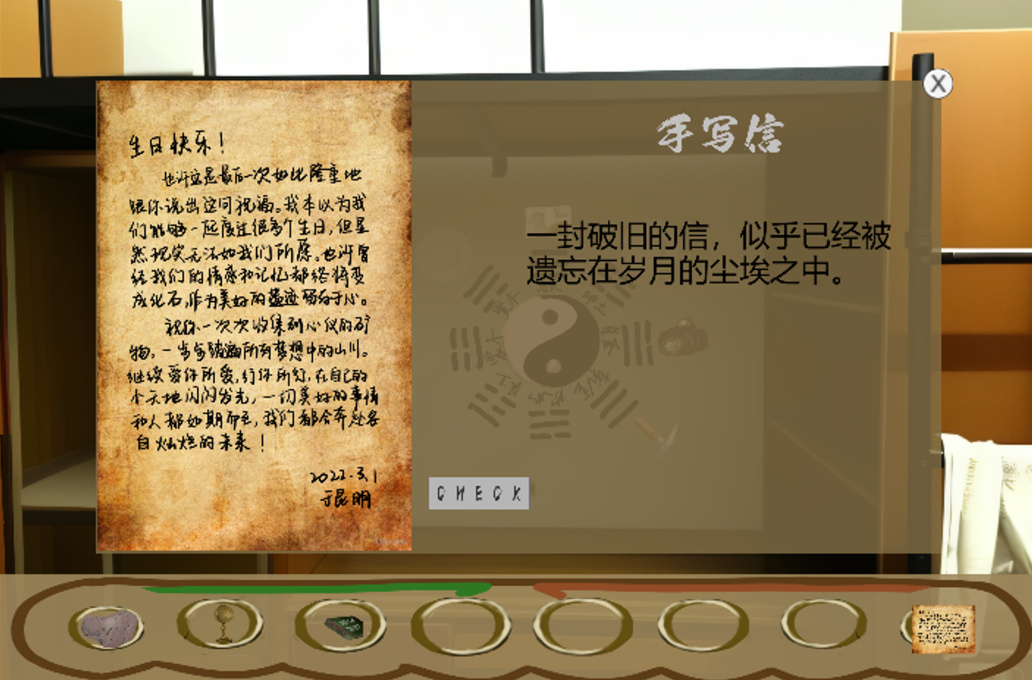 生日快乐！
也许这是最后一次如此隆重地
跟你说出这同祝福。我本以为我
们能够一起度过很多个生日，但显
然现实无法如我们所愿。也许曾
经我们的情感和记忆都终将变
成化石，作为美好的遗迹留存于心。
祝你一次次收集到心仪的矿
物。一步步踏遍所有梦想中的山川。
继续爱你所爱，行你所行，在自己的
小天地闪闪发光，一切美好的事情
和人都如期而至，我们都会奔赴各
自灿烂的未来！
2022.3.1
于昆明
手写信
一封破旧的信，似乎已经被
遗忘在岁月的尘埃之中。
CHECK
X